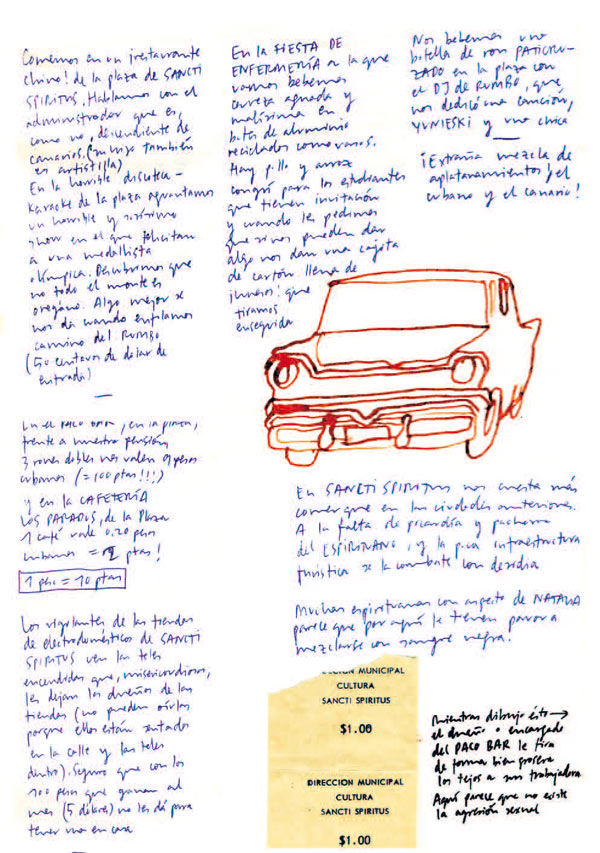 Comemos en un ¡restaurante
chino! de la plaza de SANCTI
SPIRITUS. Hablamos con el
administrador que es,
como no, descendiente de
canarios. (su hijo también
es artistilla)
En la horrible discoteca-
Karaoke de la plaza aguantamos
un horrible y
show en el que felicitan
a una medallista
olímpica. Descubrimos que
no todo el monte es
orégano. Algo mejor se
nos da cuando enfilamos
camino del RUMBO
(50 centavos de dólar de
entrada)
En el PACO BAR, en la plaza,
frente a nuestra pensión,
3 rones dobles nos valen pesos
cubanos (= 100 ptas!!!)
y en la CAFETERÍA
LOS PARADOS, de la Plaza
1 café vale 0,20 pesos
cubanos = 2 ptas!
1 peso = 10 ptas
Los vigilantes de las tiendas
de electrodomésticos de SANCTI
SPIRITUS ven las teles
encendidas que, misericordiosos,
les dejan los dueños de las
tiendas (no pueden oírlos
porque ellos están sentados
en la calle y las teles
dentro). Seguro que con los
100 pesos que ganan al
mes (5 dólares) no les da para
tener una en casa
En la FIESTA DE
ENFERMERÍA a la que
vamos bebemos
cerveza aguada y
malísima en
botes de aluminio
reciclados como vasos.
Hay pollo y arroz
congrí para los estudiantes
que tienen invitación
y cuando les pedimos
que si nos pueden dar
algo nos dan una cajita
de cartón llena de
¡huesos! que
tiramos
enseguida
Nos bebemos una
botella de ron PATICRU-
ZADO en la plaza con
el DJ de RUMBO, que
nos dedicó una canción,
YUNIESKI y una chica
¡Extraña mezcla de
aplatanamientos ¡el
cubano y el canario!
En SANCTI SPIRITUS nos cuesta más
comer que en las ciudades anteriores.
A la falta de picardía y pachorra
del ESPIRITUANO, y la poca infraestructura
turística se la combate con desidia
Muchas espirituanas con aspecto de NATALIA
parece que por aquí le tienen pavor a
mezclarse con sangre negra.
CCION MUNICIPAL
CULTURA
SANCTI SPIRITUS
$1.00
DIRECCION MUNICIPAL
CULTURA
SANCTI SPIRITUS
$1.00
Mientras dibujo ésto →
el dueño o encargado
del PACO BAR le tira
de forma bien grosera
los tejos a su trabajadora
Aquí parece que no existe
la agresión sexual